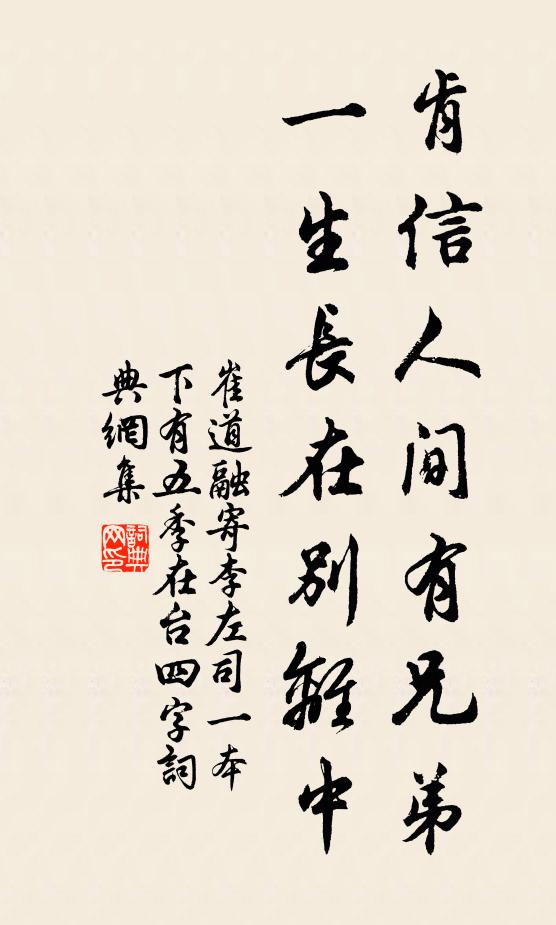 肯信人间有兄弟
一生長在别離中
崔道融寄李左司一本
下有五季在台四字詞
典網集
詞典网印